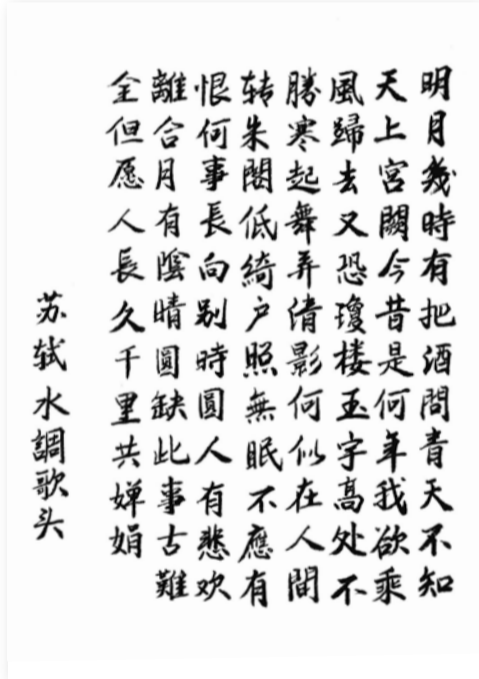 明月幾時有把酒問青天不知
天上宮闕今昔是何年我欲乘
風歸去又恐瓊楼玉宇高处不
勝寒起舞弄倩影何似在人間
转朱閣低綺户照無眠不應有
恨何事長向别時圆人有悲欢
離合月有陰晴圓缺此事古難
全但愿人長久千里共婵娟
苏轼水調歌头